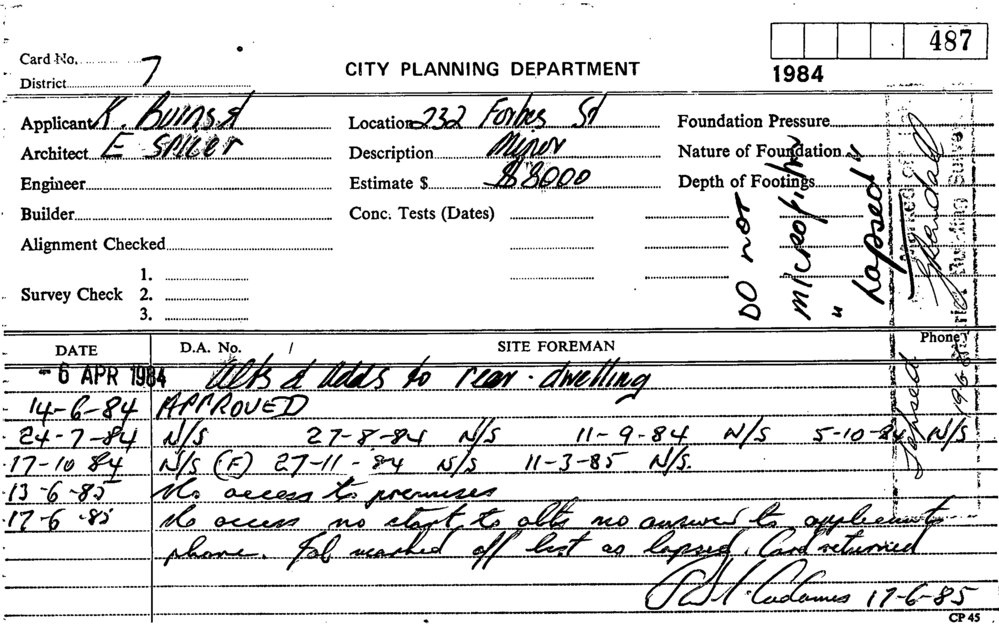 487
Card No.
District 7
CITY PLANNING DEPARTMENT
1984
Applicant K. Burns &
Architect E SPICER
Engineer
Builder
Alignment Checked
Survey Check 1.
2.
3.
Location 232 Forbes St
Description Minor
Estimate $ $8000
Conc. Tests (Dates)
Foundation Pressure
Nature of Foundation
Depth of Footings
DO NOT
MICROFICHE
"Lapsed"
Lapsed
19/6/85
Phone
DATE D.A. No. / SITE FOREMAN
- 6 APR 1984 Alts & Adds to rear - dwelling
14-6-84 APPROVED
24-7-84 N/S 27-8-84 N/S 11-9-84 N/S 5-10-84 N/S
17-10 84 N/S (F) 27-11-84 N/S 11-3-85 N/S.
13-6-85 No access to premises
17-6-85 No access no start to alts no answer to applicants
phone. Job marked off list as lapsed. Card returned
17-6-85
CP 45